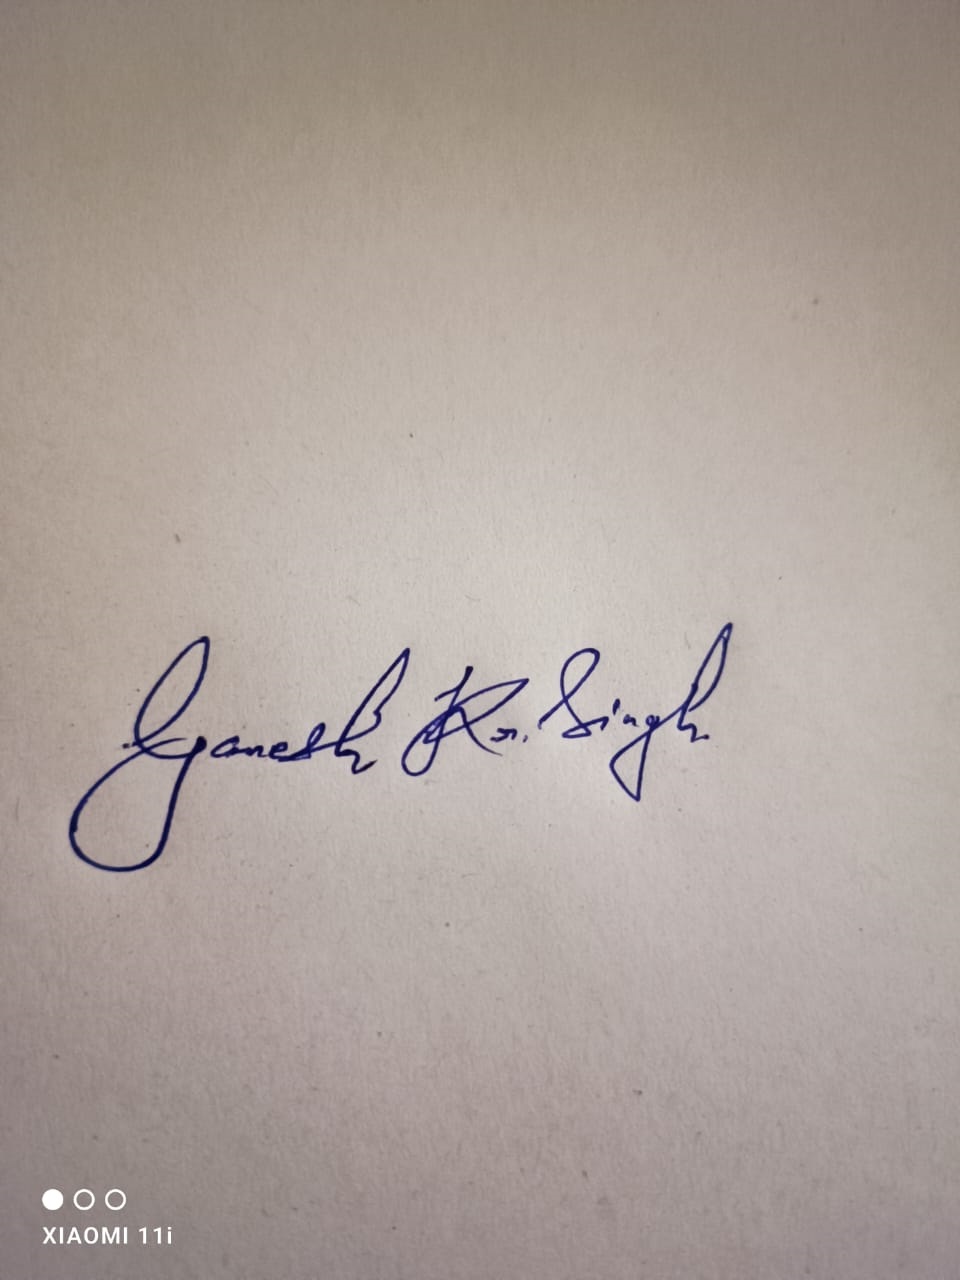 Ganesh Kr. Singh
XIAOMI 11i